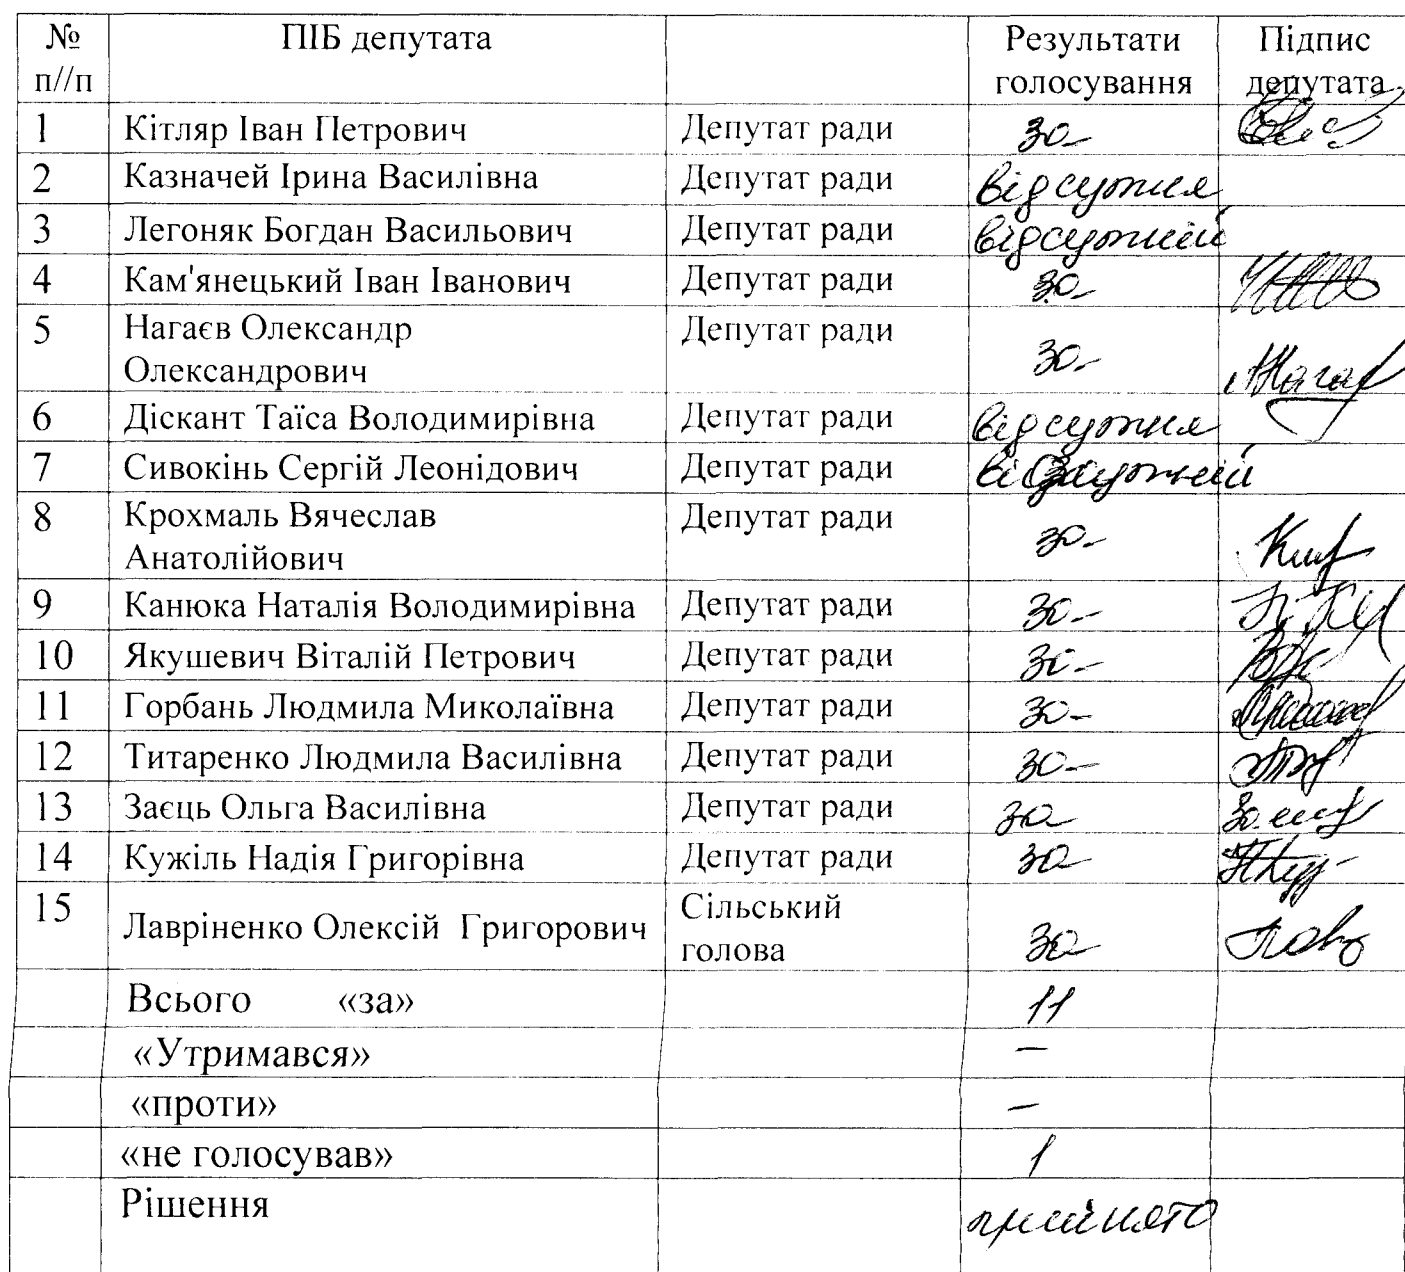 № п//п ПІБ депутата Результати голосування Підпис депутата
1 Кітляр Іван Петрович Депутат ради за
2 Казначей Ірина Василівна Депутат ради відсутня
3 Легоняк Богдан Васильович Депутат ради відсутній
4 Кам'янецький Іван Іванович Депутат ради за
5 Нагаєв Олександр Олександрович Депутат ради за
6 Діскант Таїса Володимирівна Депутат ради відсутня
7 Сивокінь Сергій Леонідович Депутат ради відсутній
8 Крохмаль Вячеслав Анатолійович Депутат ради за
9 Канюка Наталія Володимирівна Депутат ради за
10 Якушевич Віталій Петрович Депутат ради за
11 Горбань Людмила Миколаївна Депутат ради за
12 Титаренко Людмила Василівна Депутат ради за
13 Заєць Ольга Василівна Депутат ради за
14 Кужіль Надія Григорівна Депутат ради за
15 Лавріненко Олексій Григорович Сільський голова за
Всього «за» 11
«Утримався» –
«проти» –
«не голосував» 1
Рішення прийнято